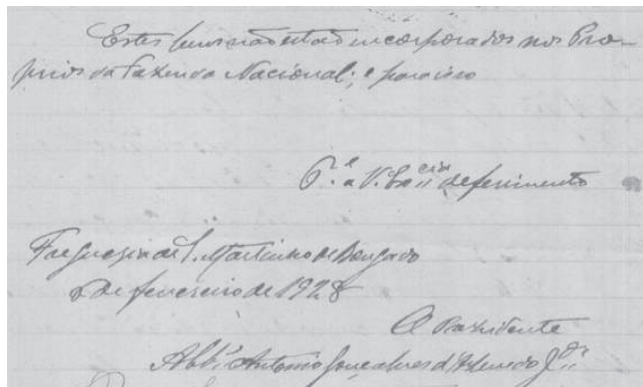 Estes bens não estão incorporados nos Pro-
prios da Fazenda Nacional; e por isso
P.e a V. Ex.cia deferimento
Freguesia de S. Martinho de Bougado
6 de fevereiro de 1928
O Presidente
Abb.e Antonio Gonçalves d'Azevedo